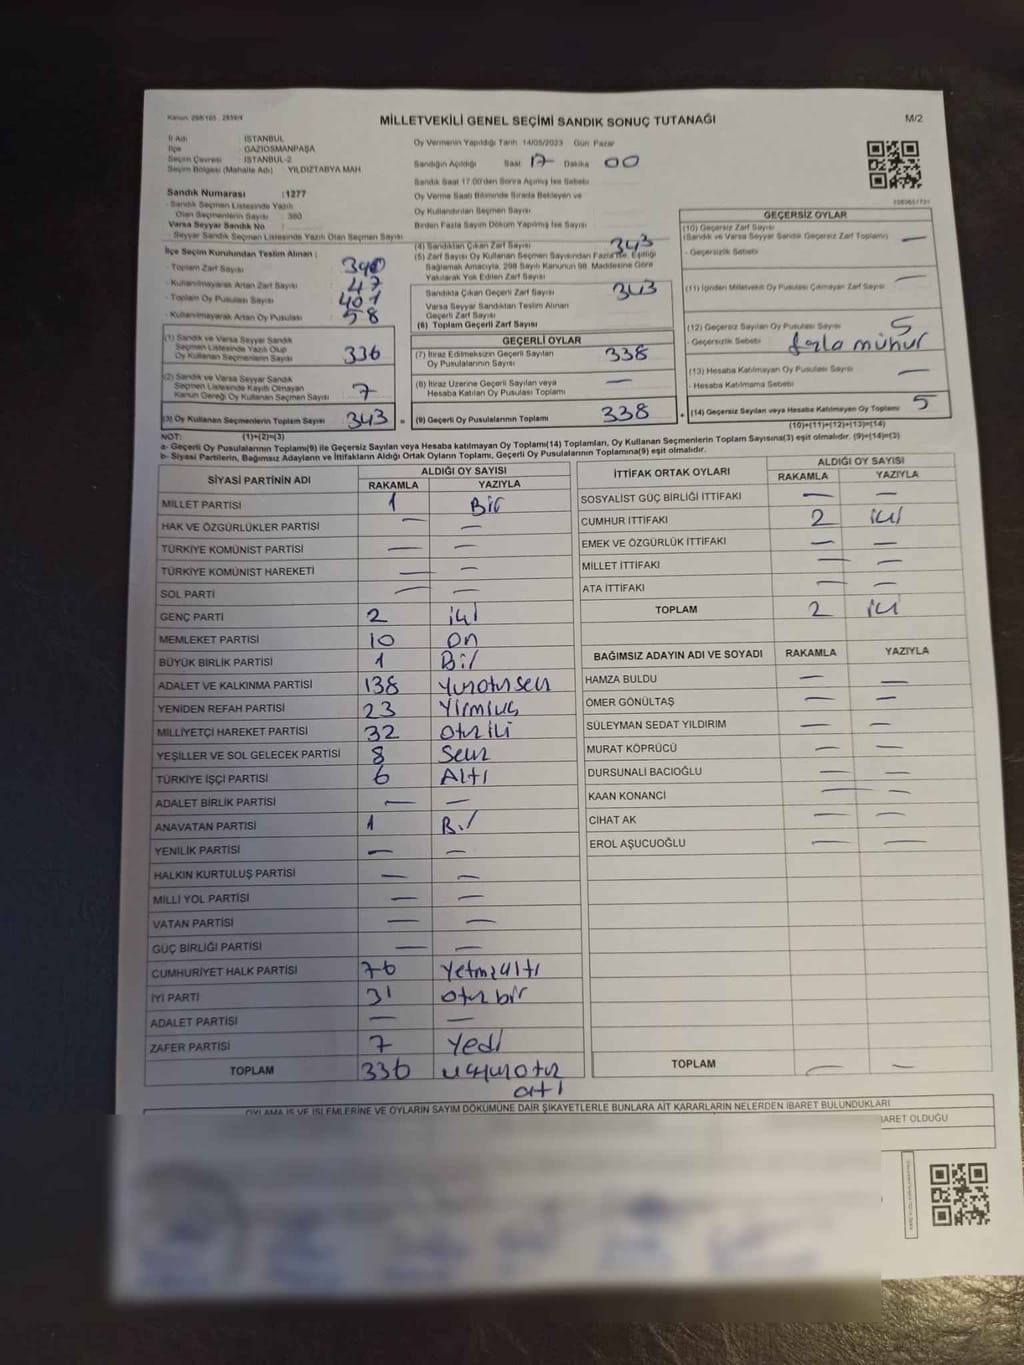 Kanun: 298/105 - 2839/4
MİLLETVEKİLİ GENEL SEÇİMİ SANDIK SONUÇ TUTANAĞI
M/2
İl Adı : İSTANBUL
İlçe : GAZİOSMANPAŞA
Seçim Çevresi : İSTANBUL-2
Seçim Bölgesi (Mahalle Adı) : YILDIZTABYA MAH
Sandık Numarası : 1277
- Sandık Seçmen Listesinde Yazılı
Olan Seçmenlerin Sayısı : 380
Varsa Seyyar Sandık No :
- Seyyar Sandık Seçmen Listesinde Yazılı Olan Seçmen Sayısı
Oy Vermenin Yapıldığı Tarih: 14/05/2023 Gün: Pazar
Sandığın Açıldığı Saat 17 Dakika 00
Sandık Saat 17:00'den Sonra Açılmış İse Sebebi
Oy Verme Saati Bitiminde Sırada Bekleyen ve
Oy Kullandırılan Seçmen Sayısı
Birden Fazla Sayım Döküm Yapılmış İse Sayısı
İlçe Seçim Kurulundan Teslim Alınan :
- Toplam Zarf Sayısı 390
- Kullanılmayarak Artan Zarf Sayısı 47
- Toplam Oy Pusulası Sayısı 401
- Kullanılmayarak Artan Oy Pusulası 58
(1) Sandık ve Varsa Seyyar Sandık
Seçmen Listesinde Yazılı Olup
Oy Kullanan Seçmenlerin Sayısı 336
(2) Sandık ve Varsa Seyyar Sandık
Seçmen Listesinde Kayıtlı Olmayan
Kanun Gereği Oy Kullanan Seçmen Sayısı 7
(3) Oy Kullanan Seçmenlerin Toplam Sayısı 343 =
(4) Sandıktan Çıkan Zarf Sayısı 343
(5) Zarf Sayısı Oy Kullanan Seçmen Sayısından Fazla İse, Eşitliği
Sağlamak Amacıyla, 298 Sayılı Kanunun 98. Maddesine Göre
Yakılarak Yok Edilen Zarf Sayısı
Sandıkta Çıkan Geçerli Zarf Sayısı 343
Varsa Seyyar Sandıktan Teslim Alınan
Geçerli Zarf Sayısı
(6) Toplam Geçerli Zarf Sayısı
GEÇERLİ OYLAR
(7) İtiraz Edilmeksizin Geçerli Sayılan
Oy Pusulalarının Sayısı 338
(8) İtiraz Üzerine Geçerli Sayılan veya
Hesaba Katılan Oy Pusulası Toplamı —
(9) Geçerli Oy Pusulalarının Toplamı 338 +
GEÇERSİZ OYLAR
(10) Geçersiz Zarf Sayısı
(Sandık ve Varsa Seyyar Sandık Geçersiz Zarf Toplamı) —
- Geçersizlik Sebebi
(11) İçinden Milletvekili Oy Pusulası Çıkmayan Zarf Sayısı —
(12) Geçersiz Sayılan Oy Pusulası Sayısı 5
- Geçersizlik Sebebi fazla mühür
(13) Hesaba Katılmayan Oy Pusulası Sayısı —
- Hesaba Katılmama Sebebi
(14) Geçersiz Sayılan veya Hesaba Katılmayan Oy Toplamı 5
NOT: (1)+(2)=(3)
(10)+(11)+(12)+(13)=(14)
a- Geçerli Oy Pusulalarının Toplamı(9) ile Geçersiz Sayılan veya Hesaba katılmayan Oy Toplamı(14) Toplamları, Oy Kullanan Seçmenlerin Toplam Sayısına(3) eşit olmalıdır. (9)+(14)=(3)
b- Siyasi Partilerin, Bağımsız Adayların ve İttifakların Aldığı Ortak Oyların Toplamı, Geçerli Oy Pusulalarının Toplamına(9) eşit olmalıdır.
SİYASİ PARTİNİN ADI ALDIĞI OY SAYISI
RAKAMLA YAZIYLA
MİLLET PARTİSİ 1 Bir
HAK VE ÖZGÜRLÜKLER PARTİSİ — —
TÜRKİYE KOMÜNİST PARTİSİ — —
TÜRKİYE KOMÜNİST HAREKETİ — —
SOL PARTİ — —
GENÇ PARTİ 2 iki
MEMLEKET PARTİSİ 10 On
BÜYÜK BİRLİK PARTİSİ 1 Bir
ADALET VE KALKINMA PARTİSİ 138 Yüzotuzsekiz
YENİDEN REFAH PARTİSİ 23 Yirmiüç
MİLLİYETÇİ HAREKET PARTİSİ 32 Otuziki
YEŞİLLER VE SOL GELECEK PARTİSİ 8 Sekiz
TÜRKİYE İŞÇİ PARTİSİ 6 Altı
ADALET BİRLİK PARTİSİ — —
ANAVATAN PARTİSİ 1 Bir
YENİLİK PARTİSİ — —
HALKIN KURTULUŞ PARTİSİ — —
MİLLİ YOL PARTİSİ — —
VATAN PARTİSİ — —
GÜÇ BİRLİĞİ PARTİSİ — —
CUMHURİYET HALK PARTİSİ 76 Yetmişaltı
İYİ PARTİ 31 otuzbir
ADALET PARTİSİ — —
ZAFER PARTİSİ 7 Yedi
TOPLAM 336 üçyüzotuz
altı
İTTİFAK ORTAK OYLARI ALDIĞI OY SAYISI
RAKAMLA YAZIYLA
SOSYALİST GÜÇ BİRLİĞİ İTTİFAKI — —
CUMHUR İTTİFAKI 2 iki
EMEK VE ÖZGÜRLÜK İTTİFAKI — —
MİLLET İTTİFAKI — —
ATA İTTİFAKI — —
TOPLAM 2 iki
BAĞIMSIZ ADAYIN ADI VE SOYADI RAKAMLA YAZIYLA
HAMZA BULDU — —
ÖMER GÖNÜLTAŞ — —
SÜLEYMAN SEDAT YILDIRIM — —
MURAT KÖPRÜCÜ — —
DURSUNALİ BACIOĞLU — —
KAAN KONANCİ — —
CİHAT AK — —
EROL AŞUCUOĞLU — —
TOPLAM — —
OYLAMA İŞ VE İŞLEMLERİNE VE OYLARIN SAYIM DÖKÜMÜNE DAİR ŞİKAYETLERLE BUNLARA AİT KARARLARIN NELERDEN İBARET BULUNDUKLARI
BARET OLDUĞU